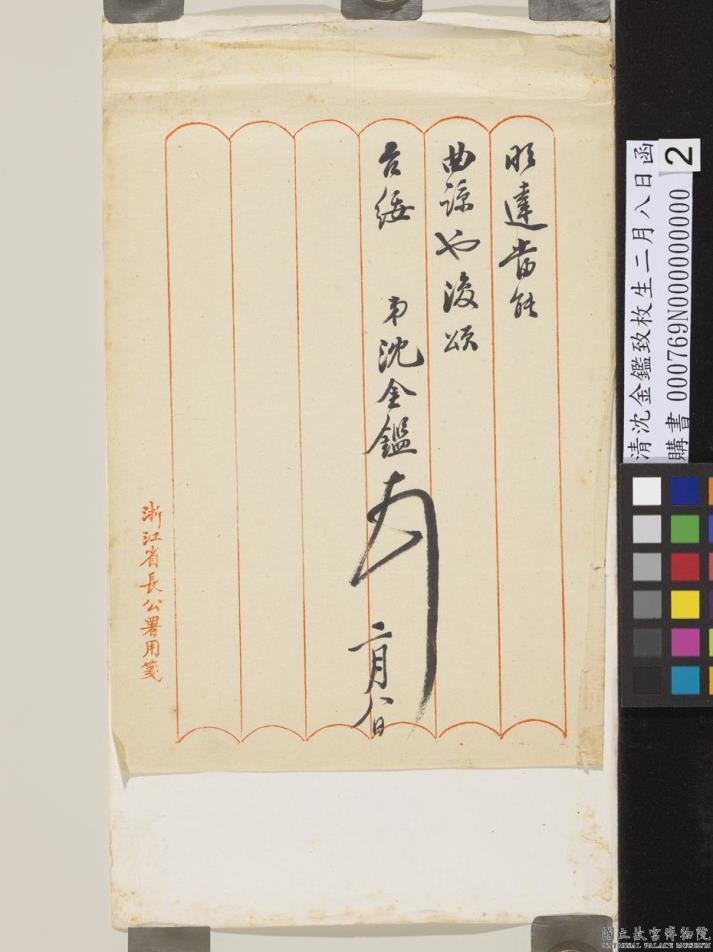 明達當能
曲諒也復頌
台綏　弟沈金鑑頓
二月八日
浙江省長公署用箋
清沈金鑑致枚生二月八日函
購書 000769N0000000000
2
國立故宮博物院
NATIONAL PALACE MUSEUM